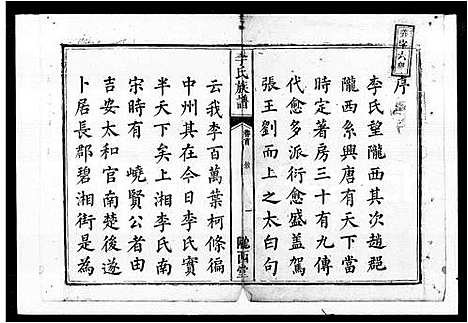 序
李氏望隴西其次趙郡
隴西系興唐有天下當
時定著房三十有九傳
代愈多派衍愈盛蓋駕
張王劉而上之太白句
李氏族譜
卷首
一
隴西堂
云我李百萬葉柯條徧
中州其在今日李氏實
半天下矣上湘李氏南
宋時有 嶢賢公者由
吉安太和官南楚後遂
卜居長郡碧湘街是為